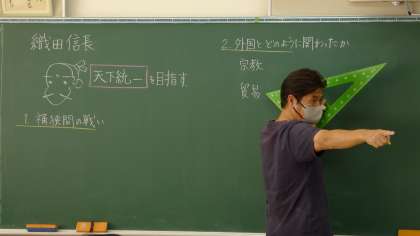 織田信長
天下統一を目指す
1. 桶狭間の戦い
2. 外国とどのように関わったか
宗教
貿易